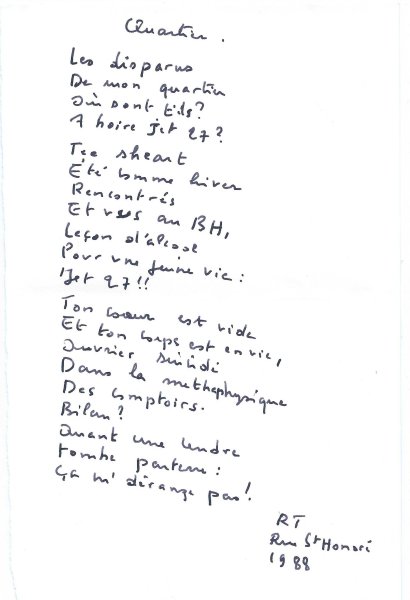 Quartier.
Les disparus
De mon quartier
Où sont t'ils?
A boire Jet 27?
Tee sheart
Été comme hiver
Rencontrés
Et vus au BH,
Leçon d'alcool
Pour une jeune vie:
"Jet 27!!
Ton cœur est vide
Et ton corps est en vie,
Ouvrier suicidé
Dans la methaphysique
Des comptoirs.
Bilan?
Quant une
tombe par terre:
Ça m'dérange pas!
RT
Rue St Honoré
1988